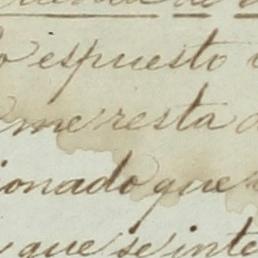 o espuesto
me resta
ionado que
que se inte